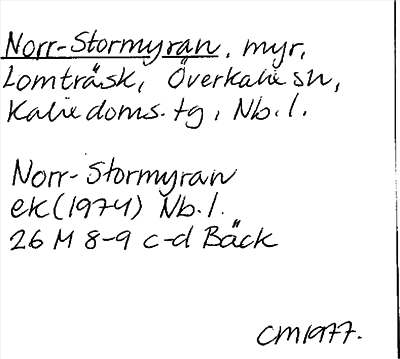 Norr-Stormyran, myr,
Lomträsk, Överkalix sn,
Kalix doms. tg, Nb. l.
Norr-Stormyran
ek (1974) Nb. l.
26 M 8-9 c-d Bäck
CM 1977.